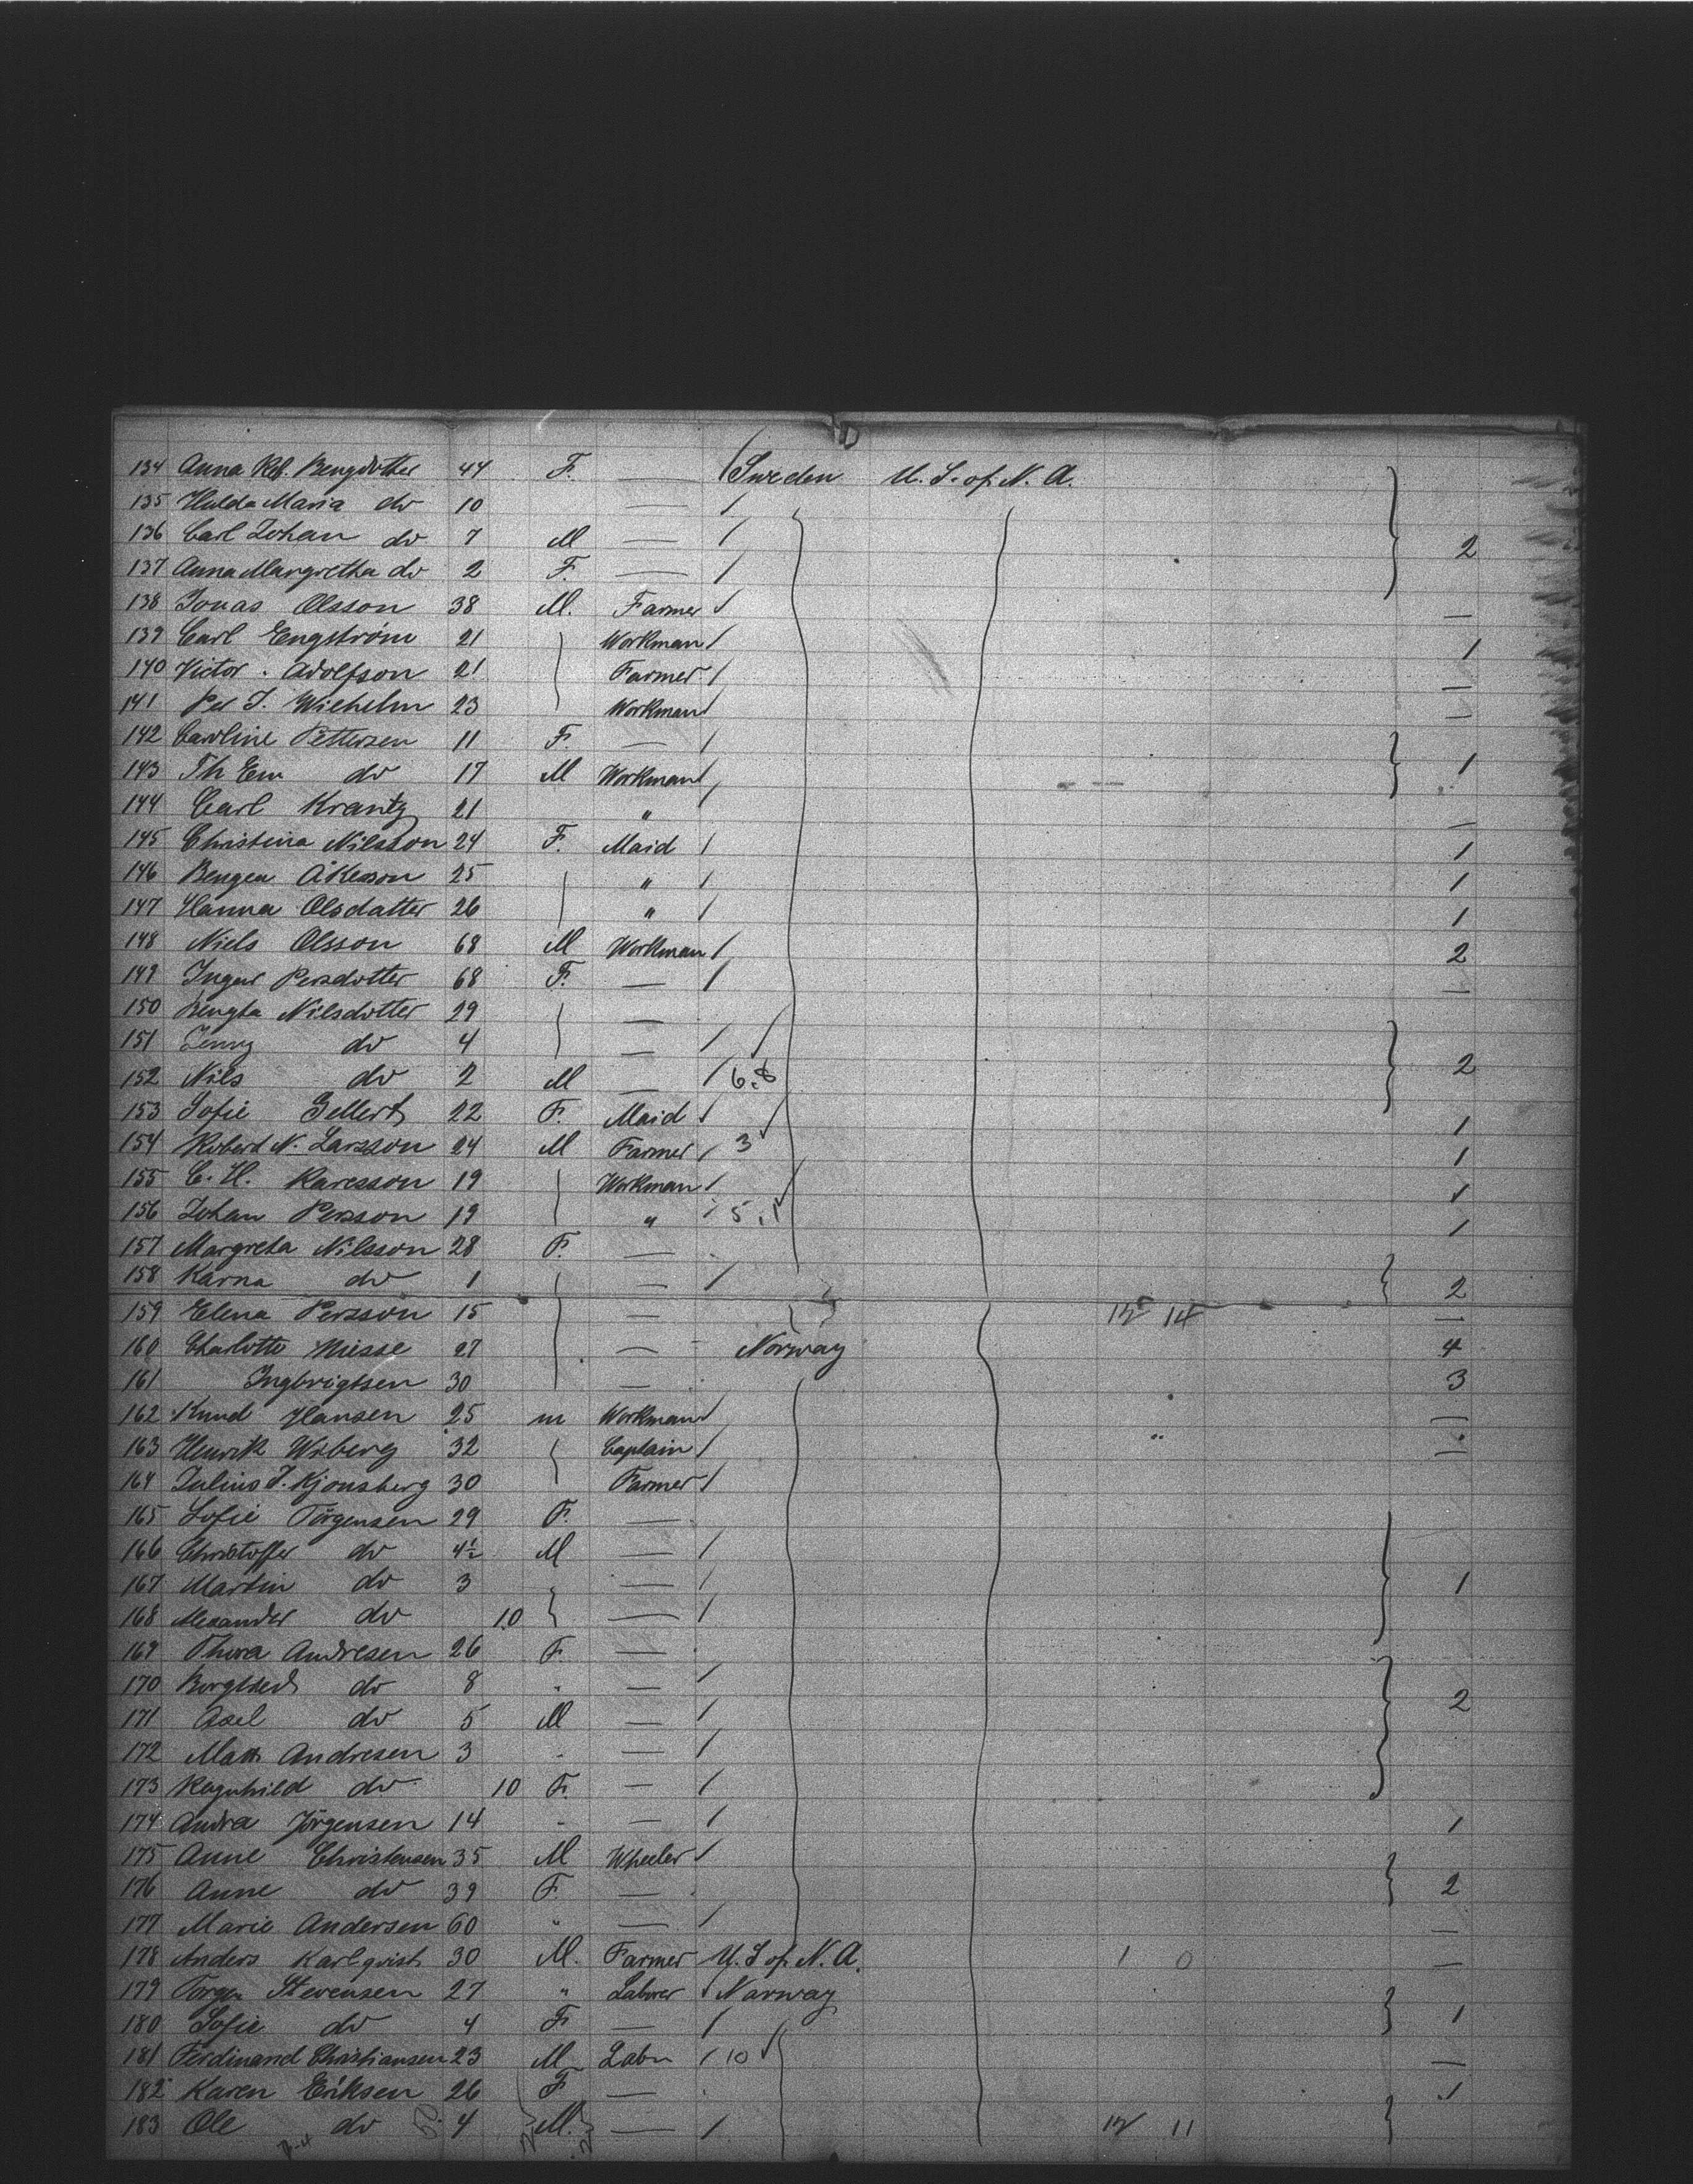 134 Anna Reb. Bengdotter 44 F. — Sweden U. S. of N. A.
135 Hulda Maria do 10 —
136 Carl Johan do 7 M — 2
137 Anna Margretha do 2 F. —
138 Jonas Olsson 38 M. Farmer —
139 Carl Engström 21 Workman 1
140 Victor. Adolfson 21 Farmer —
141 Per J. Wichelm 23 Workman —
142 Caroline Pettersen 11 F. —
143 Th Em do 17 M Workman 1
144 Carl Krantz 21 " —
145 Christina Nilsson 24 F. Maid 1
146 Bengen Åkesson 25 " 1
147 Hanna Olsdatter 26 " 1
148 Niels Olsson 68 M Workman 2
149 Ingar Persdotter 68 F. — —
150 Bengta Nilsdotter 29 —
151 Jenny do 4 —
152 Nils do 2 M — 6.8 2
153 Sofie Gellert 22 F. Maid 1
154 Robert N. Larsson 24 M Farmer 3 1
155 C. H. Karesson 19 Workman 1
156 Johan Persson 19 " 5.1 1
157 Margreta Nilsson 28 F. —
158 Karna do 1 — 2
159 Elena Persson 15 — 12 14 —
160 Charlotte Nisse 27 — Norway 4
161 Ingbrigtsen 30 — 3
162 Knud Hansen 25 m Workman —
163 Henrik Wiberg 32 Captain —
164 Julius J. Kjonsberg 30 Farmer
165 Sofie Törgensen 29 F. —
166 Christoffer do 4½ M —
167 Martin do 3 — 1
168 Alexander do 10 —
169 Thora Andresen 26 F. —
170 Borghed do 8 " —
171 Axel do 5 M — 2
172 Math Andresen 3 " —
173 Ragnhild do 10 F. —
174 Andra Jörgensen 14 " — 1
175 Anne Christensen 35 M Wheeler
176 Anne do 39 F. — 2
177 Marie Andersen 60 " — —
178 Anders Karlqvist 30 M. Farmer U. S of N. A. 1 0 —
179 Torger Stevensen 27 " Laborer Norway
180 Sofie do 4 F — 1
181 Ferdinand Christiansen 23 M Labr 10 —
182 Karen Eriksen 26 F — 1
183 Ole do 4 M. — 12 11